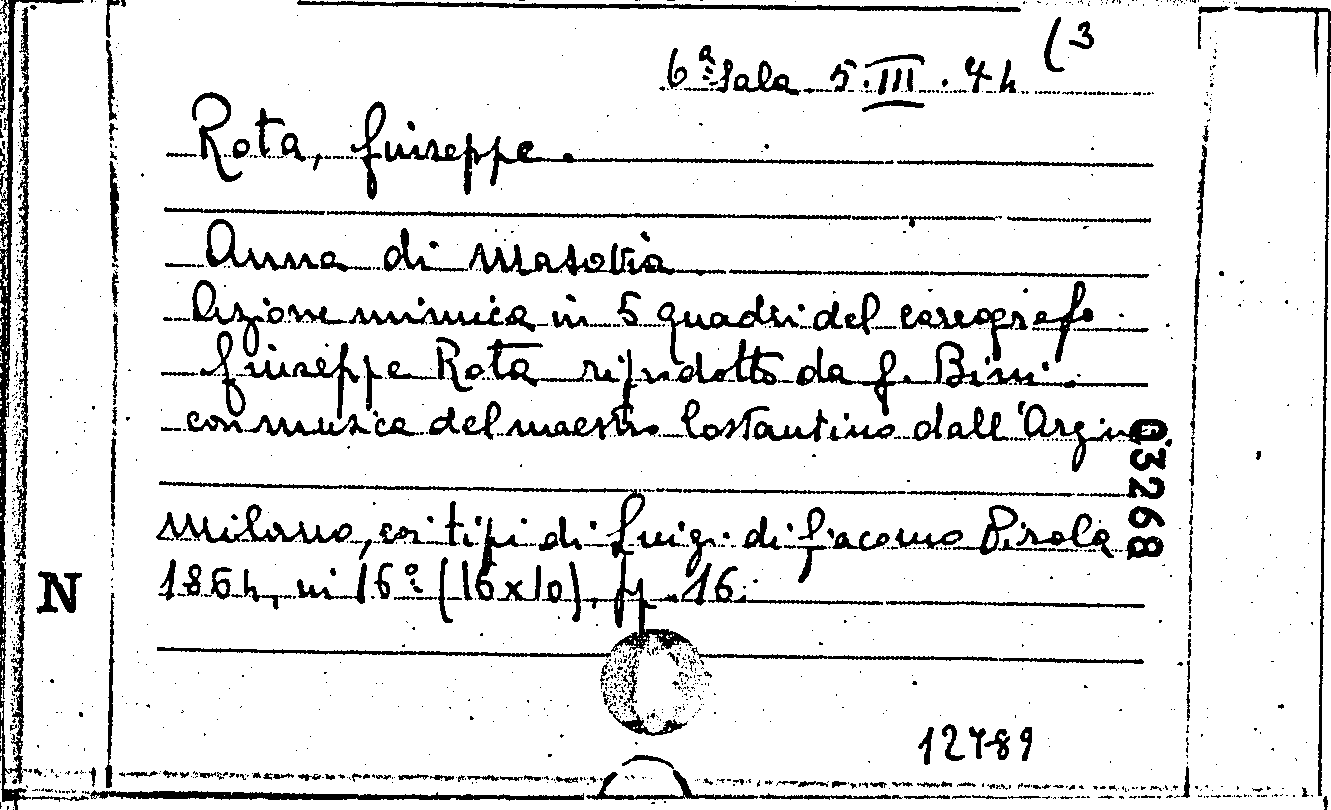 6ª Sala 5.III.74 (3
Rota, Giuseppe.
Anna di Masovia
Azione mimica in 5 quadri del coreografo
Giuseppe Rota riprodotto da G. Bini.
con musica del maestro Costantino dall'Argine
03268
Milano, coi tipi di Luigi di Giacomo Pirola
1864, in 16° (16x10), pp. 16.
N
12789